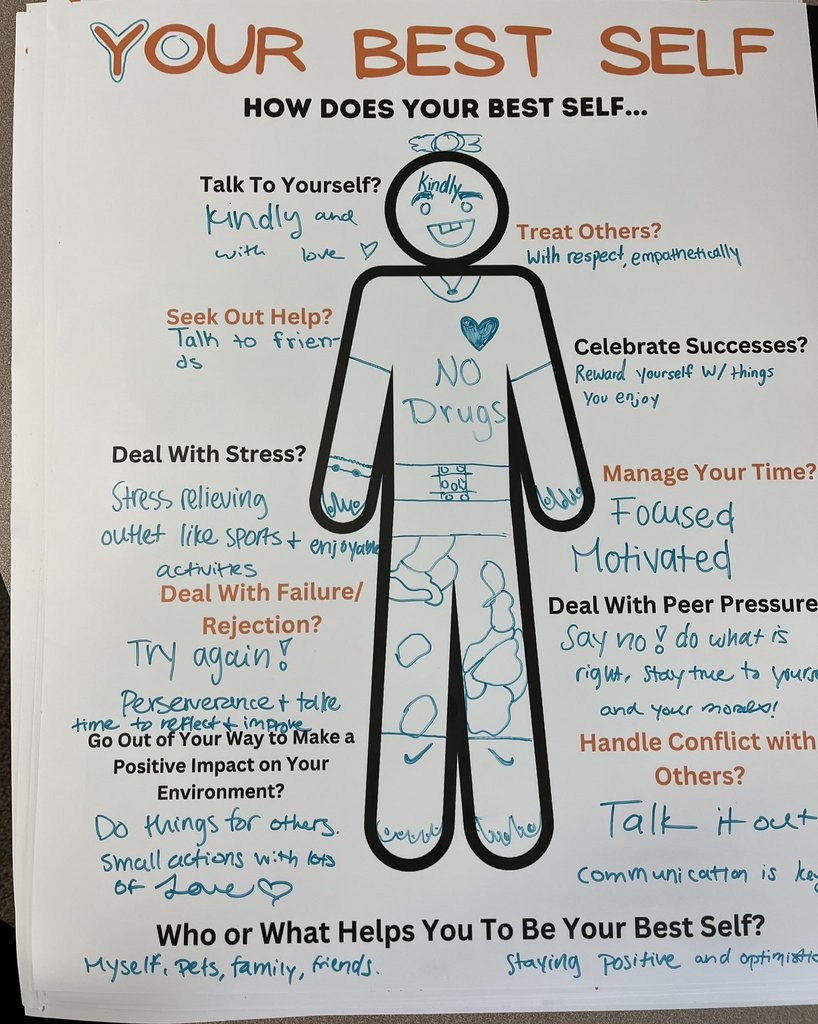 YOUR BEST SELF
HOW DOES YOUR BEST SELF...
Talk To Yourself?
Kindly and
with love
Kindly
Treat Others?
With respect, empathetically
Seek Out Help?
Talk to frien-
ds
Celebrate Successes?
Reward yourself w/ things
you enjoy
NO
Drugs
Deal With Stress?
Stress relieving
outlet like sports + enjoyable
activities
Manage Your Time?
Focused
Motivated
Deal With Failure/
Rejection?
Try again!
Perserverance + take
time to reflect + improve
Deal With Peer Pressure
Say no! do what is
right, stay true to yourse
and your morales!
Go Out of Your Way to Make a
Positive Impact on Your
Environment?
Do things for others.
Small actions with lots
of Love
Handle Conflict with
Others?
Talk it out
communication is key
Who or What Helps You To Be Your Best Self?
Myself, Pets, family, friends.
Staying positive and optimistic